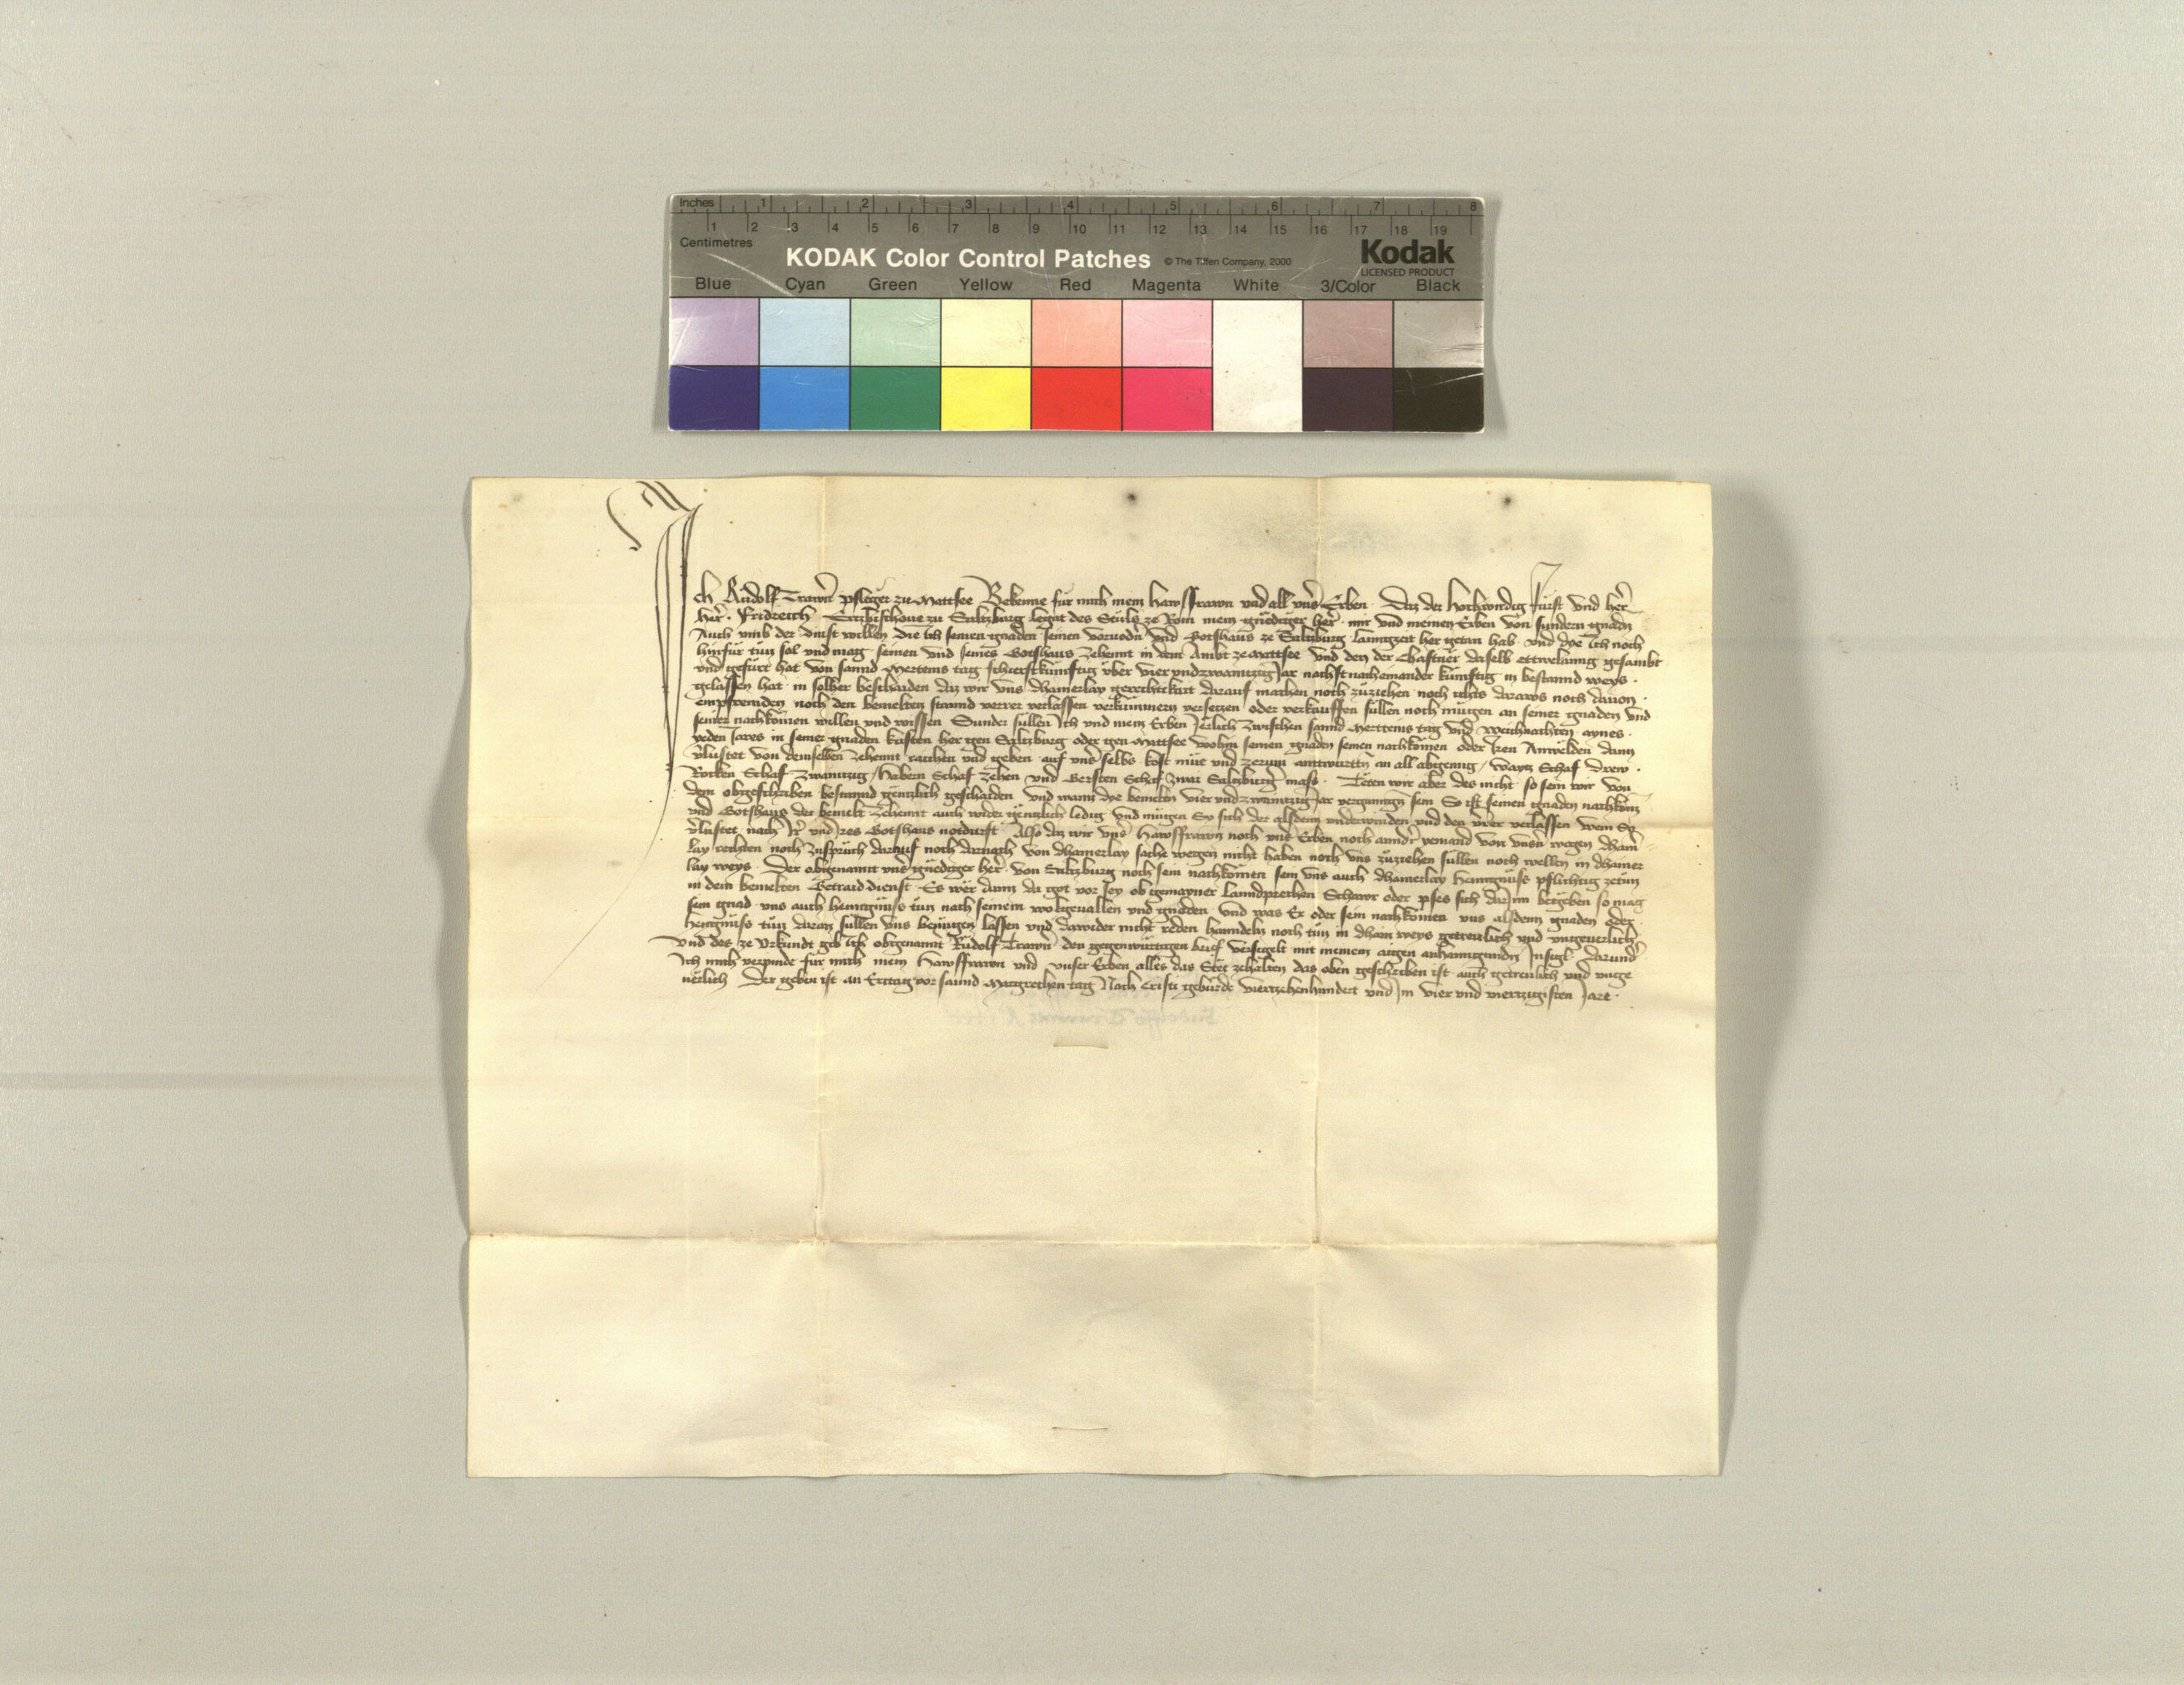 Inches 1 2 3 4 5 6 7 8
1 2 3 4 5 6 7 8 9 10 11 12 13 14 15 16 17 18 19
Centimetres
KODAK Color Control Patches © The Tiffen Company, 2000 Kodak
LICENSED PRODUCT
Blue Cyan Green Yellow Red Magenta White 3/Color Black
Ich Rudolf Trawñ pfleger zu Mattsee Bekenne für mich mein Hawsfrawn und all unser Erben Daz der Hochwirdig Fürst und her
her Fridreich Ertzbischove zu Saltzburg legat des Stüls ze Rom mein gnediger her mir und meinen Erben von sundern gnaden
Auch umb der dinst willen Die Ich seinen gnaden seinen vorvodn und Gotshaus ze Saltzburg lanngzeit her getan hab und dye Ich noch
hinfür tun sol und mag seinen und seines Gotshaus Zehennt in dem Ambt ze Mattsee und den der Chastner daselb ettwelanng gesambt
und gefürt hat von sannd Merteins tag schiristkünftig über vierundzwaintzig Jar nachst nacheinander künftig in bestannd weys
gelassen hat in solher beschaiden daz wir uns dhainerlay gerechtikait darauf machen noch zuziehen noch ichts daraws noch davon
empfremden noch den bemelten stannd verrer verlassen verkümmern versetzen oder verkauffen süllen noch mügen an seiner gnaden und
seiner nachkomen willen und wissen Sunder süllen Ich und mein Erben Jerlich zwischen sannd Merteins tag und Weichnachten aynes
yeden Jares in seiner gnaden kasten her gen Saltzburg oder gen Mattsee wohin seinen gnaden seinen nachkomen oder Iren Anwelden dann
verlustet von demselben Zehennt raichen und geben auf unser selbs kost müe und zerung anttwurtten an all abgenng / Waytz Schaf Drew
Rokken Schaf zwaintzig / Habern Schaf zehen und Gersten Schaf zwai Saltzburger mass Teten wir aber des nicht so sein wir von
dem obgeschriben bestannd gentzlich geschaiden und wann dye bemelten vierundzwaintzig Jar vergangen sein So ist seinen gnaden nachkomen
und Gotshaus der bemelt Zehennt auch wider gentzlich ledig und mügen Sy sich der alsdenn underwinden und den verer verlassen wem Sy
verlustet nach Ir und Ires Gotshaus notdurft Also daz wir unser Hawsfrawn noch unser Erben noch annder yemand von unsern wegen dhain
lay rechten noch Zuspruch darauf noch darnach von dhainerlay sache wegen nicht haben noch uns zuziehen süllen noch wellen in dhainer
lay weys Der obgenannt unser gnediger her von Saltzburg noch sein nachkomen sein uns auch dhainerlay henngnüss pflichtig zetun
in dem bemelten Getraid dienst Es wer dann da got vor sey ob gemayner lanndprechen Schawr oder pyses sich darinn begeben so mag
sein gnad uns auch henngnüss tun nach seinem wolgevallen und gnaden und was Er oder sein nachkomen uns alsdenn gnaden oder
henngnüss tun daran süllen uns benügen lassen und dawider nicht reden hanndeln noch tun in dhain weys getreulich und ungeverlich
Und des ze Urkundt geb Ich obgenannt Rudolf Trawñ den gegenwürtigen brief versigelt mit meinem aigen anhanngunden Insigl Darunder
Ich mich verpinde für mich mein Hawsfrawn und unser Erben alles das Stet zehalten das oben geschriben ist auch getreulich und unge
verlich Der geben ist an Erttag vor sannd Margrethen tag Nach Cristi geburde vierzehenhundert und In vier und viertzigisten Jare